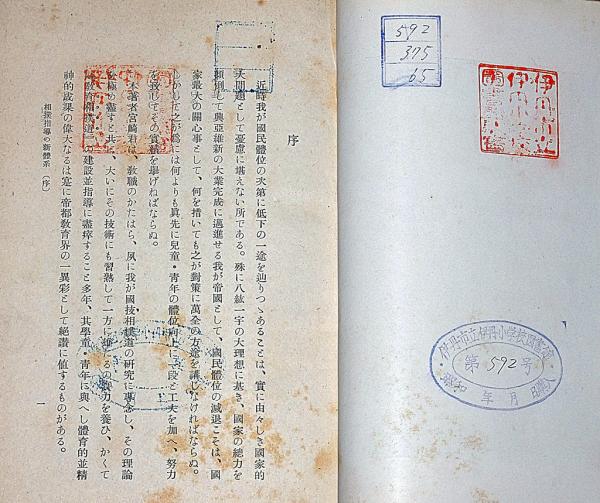 序
近時我が國民體位の次第に低下の一途を辿りつゝあることは、實に由々しき國家的
大問題として憂慮に堪えない所である。殊に八紘一宇の大理想に基き、國家の總力を
傾倒して興亞維新の大業完成に邁進せる我が帝國として、國民體位の減退こそは、國
家最大の關心事として、何を措いても之が對策に萬全の方途を講じなければならぬ。
しかして之が爲には何よりも眞先に兒童・青年の體位向上に一段と工夫を加へ、努力
を致してその實績を擧げねばならぬ。
本著者宮崎君は、敎職のかたはら、夙に我が國技相撲道の研究に專念し、その理論
を極め盡すと共に、大いにその技術にも習熟して一方に雄たるの實力を養ひ、かくて
相撲道の建設並指導に盡瘁すること多年、其學童・青年に與へし體育的並精
神的成果の偉大なるは寔に帝都敎育界の一異彩として絕讃に値するものがある。
相撲指導の新體系（序）
一
592
375
65
伊丹市立
伊丹小學
伊丹市立伊丹小学校図書館
第592号
昭和 年 月 日購入